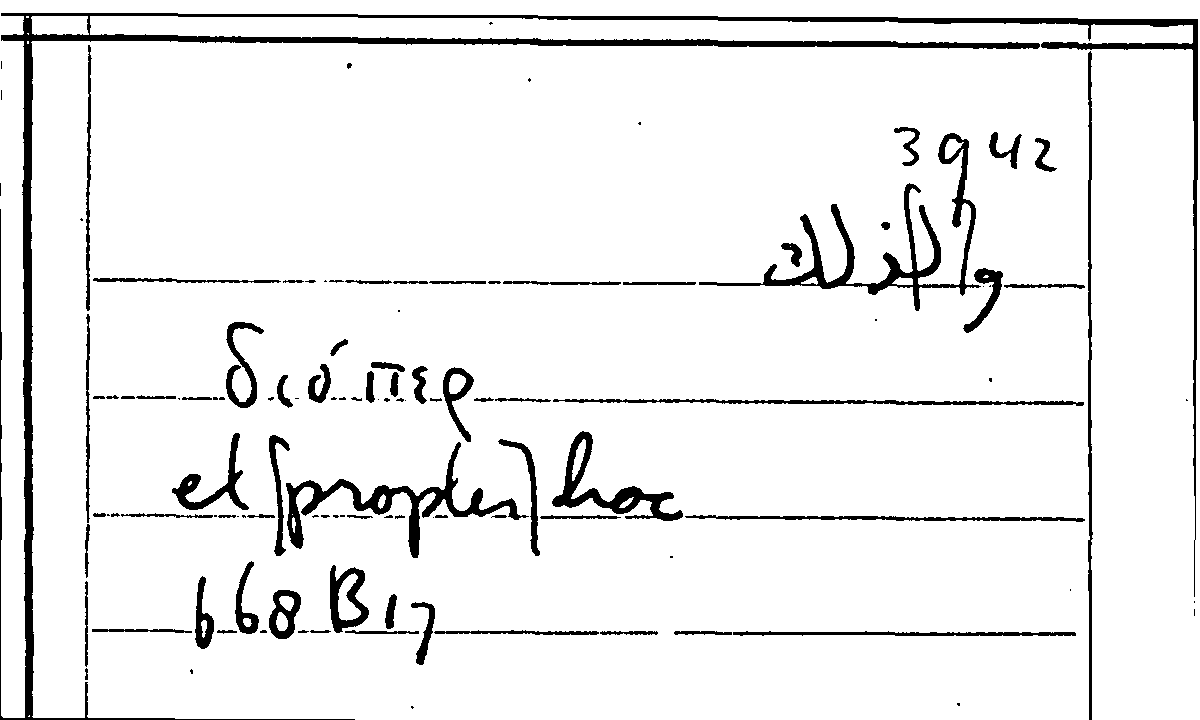 3942
و[ل]ذلك
διόπερ
et [propter] hoc
668 B 17